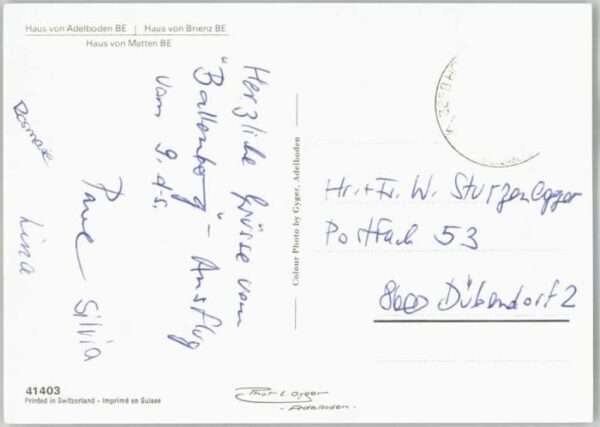 Haus von Adelboden BE | Haus von Brienz BE
Haus von Matten BE
Herzliche Grüsse vom
"Ballenberg"- Ausflug
vom 9. d.s.
Rosmarie
Lina
Silvia
Colour Photo by Gyger, Adelboden
Hr.+Fr. W. Sturzenegger
Postfach 53
8600 Dübendorf 2
41403
Printed in Switzerland - Imprimé en Suisse
Phot E. Gyger
- Adelboden -